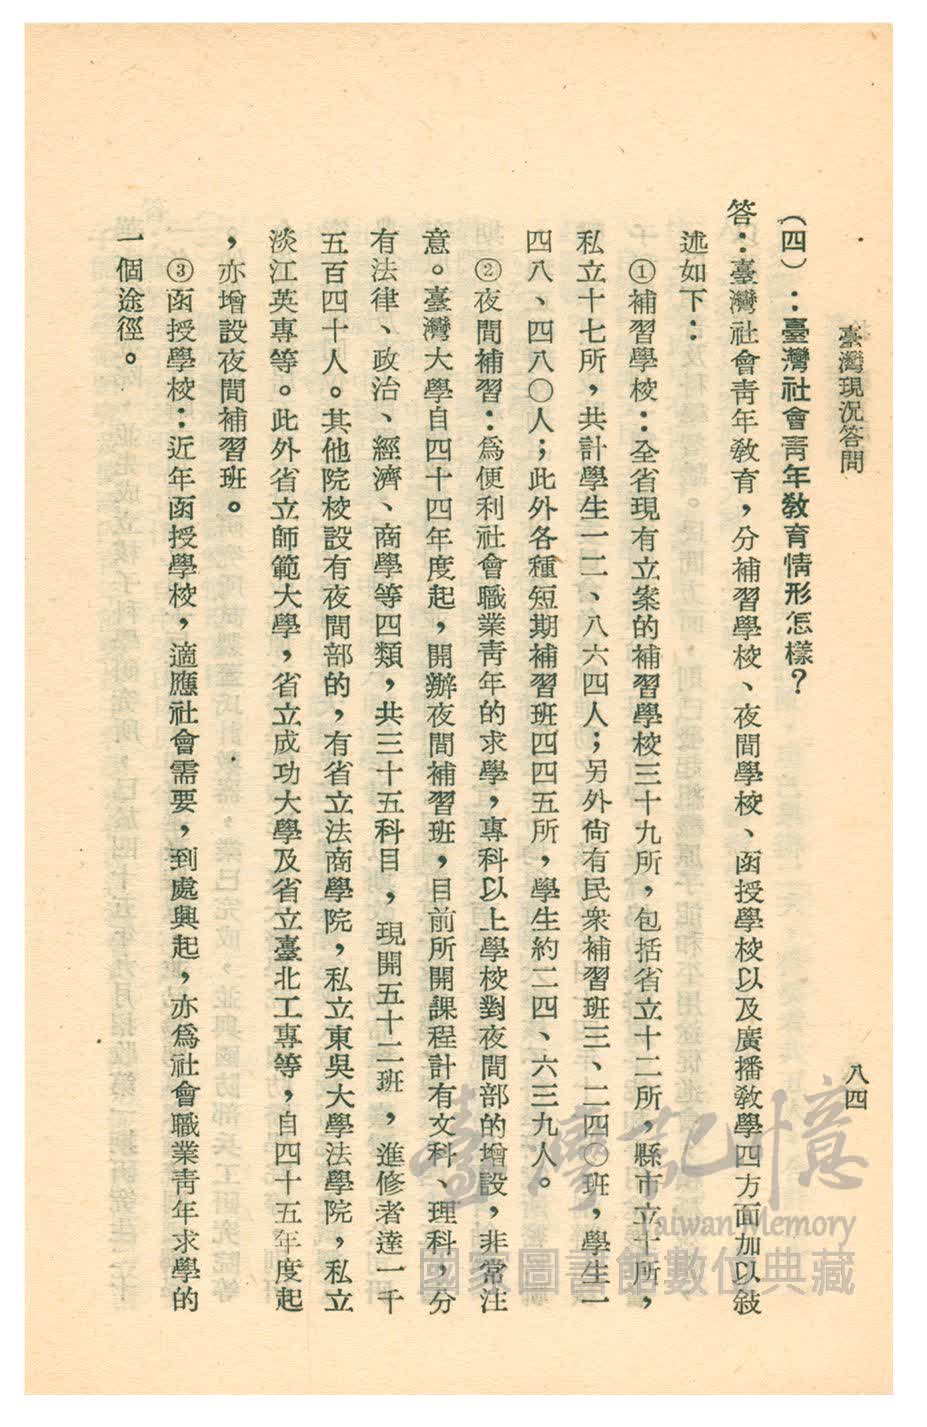 臺灣現況答問
八四
(四)：臺灣社會靑年敎育情形怎樣？
答：臺灣社會靑年敎育，分補習學校、夜間學校、函授學校以及廣播敎學四方面加以敍
述如下：
①補習學校：全省現有立案的補習學校三十九所，包括省立十二所，縣市立十所，
私立十七所，共計學生一二、八六四人；另外尙有民衆補習班三、二四〇班，學生一
四八、四八〇人；此外各種短期補習班四四五所，學生約二四、六三九人。
②夜間補習：爲便利社會職業靑年的求學，專科以上學校對夜間部的增設，非常注
意。臺灣大學自四十四年度起，開辦夜間補習班，目前所開課程計有文科、理科，分
有法律、政治、經濟、商學等四類，共三十五科目，現開五十二班，進修者達一千
五百四十人。其他院校設有夜間部的，有省立法商學院，私立東吳大學法學院，私立
淡江英專等。此外省立師範大學，省立成功大學及省立臺北工專等，自四十五年度起
，亦增設夜間補習班。
③函授學校：近年函授學校，適應社會需要，到處興起，亦爲社會職業靑年求學的
一個途徑。
臺灣記憶
Taiwan Memory
國家圖書館數位典藏